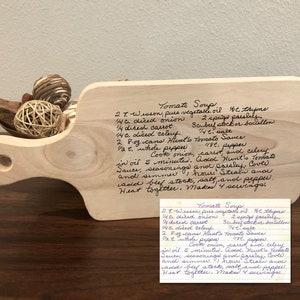 Tomato Soup
2 T. Wesson pure vegetable oil ¼ t. thyme
¼ c. diced onion 2 sprigs parsley
¼ c. diced carrot 3 c. beef stock or bouillon
¼ c. diced celery ¼ t. salt
2 8 oz. cans Hunt's Tomato Sauce
1/8 t. whole pepper
Cook onion, carrot and celery
in oil 5 minutes. Add Hunt's Tomato
Sauce, seasonings and parsley. Cover
and simmer ½ hour. Strain and
add beef stock, salt, and pepper.
Heat together. Makes 4 servings.
Tomato Soup
2 T. Wesson pure vegetable oil ¼ t. thyme
¼ c. diced onion 2 sprigs parsley
¼ c. diced carrot 3 c. beef stock or bouillon
¼ c. diced celery ¼ t. salt
2 8 oz. cans Hunt's Tomato Sauce
whole pepper pepper
Cook onion, carrot and celery
in oil 5 minutes. Add Hunt's Tomato
Sauce, seasonings and parsley. Cover
and simmer ½ hour. Strain and
add beef stock, salt, and pepper.
Heat together. Makes 4 servings.